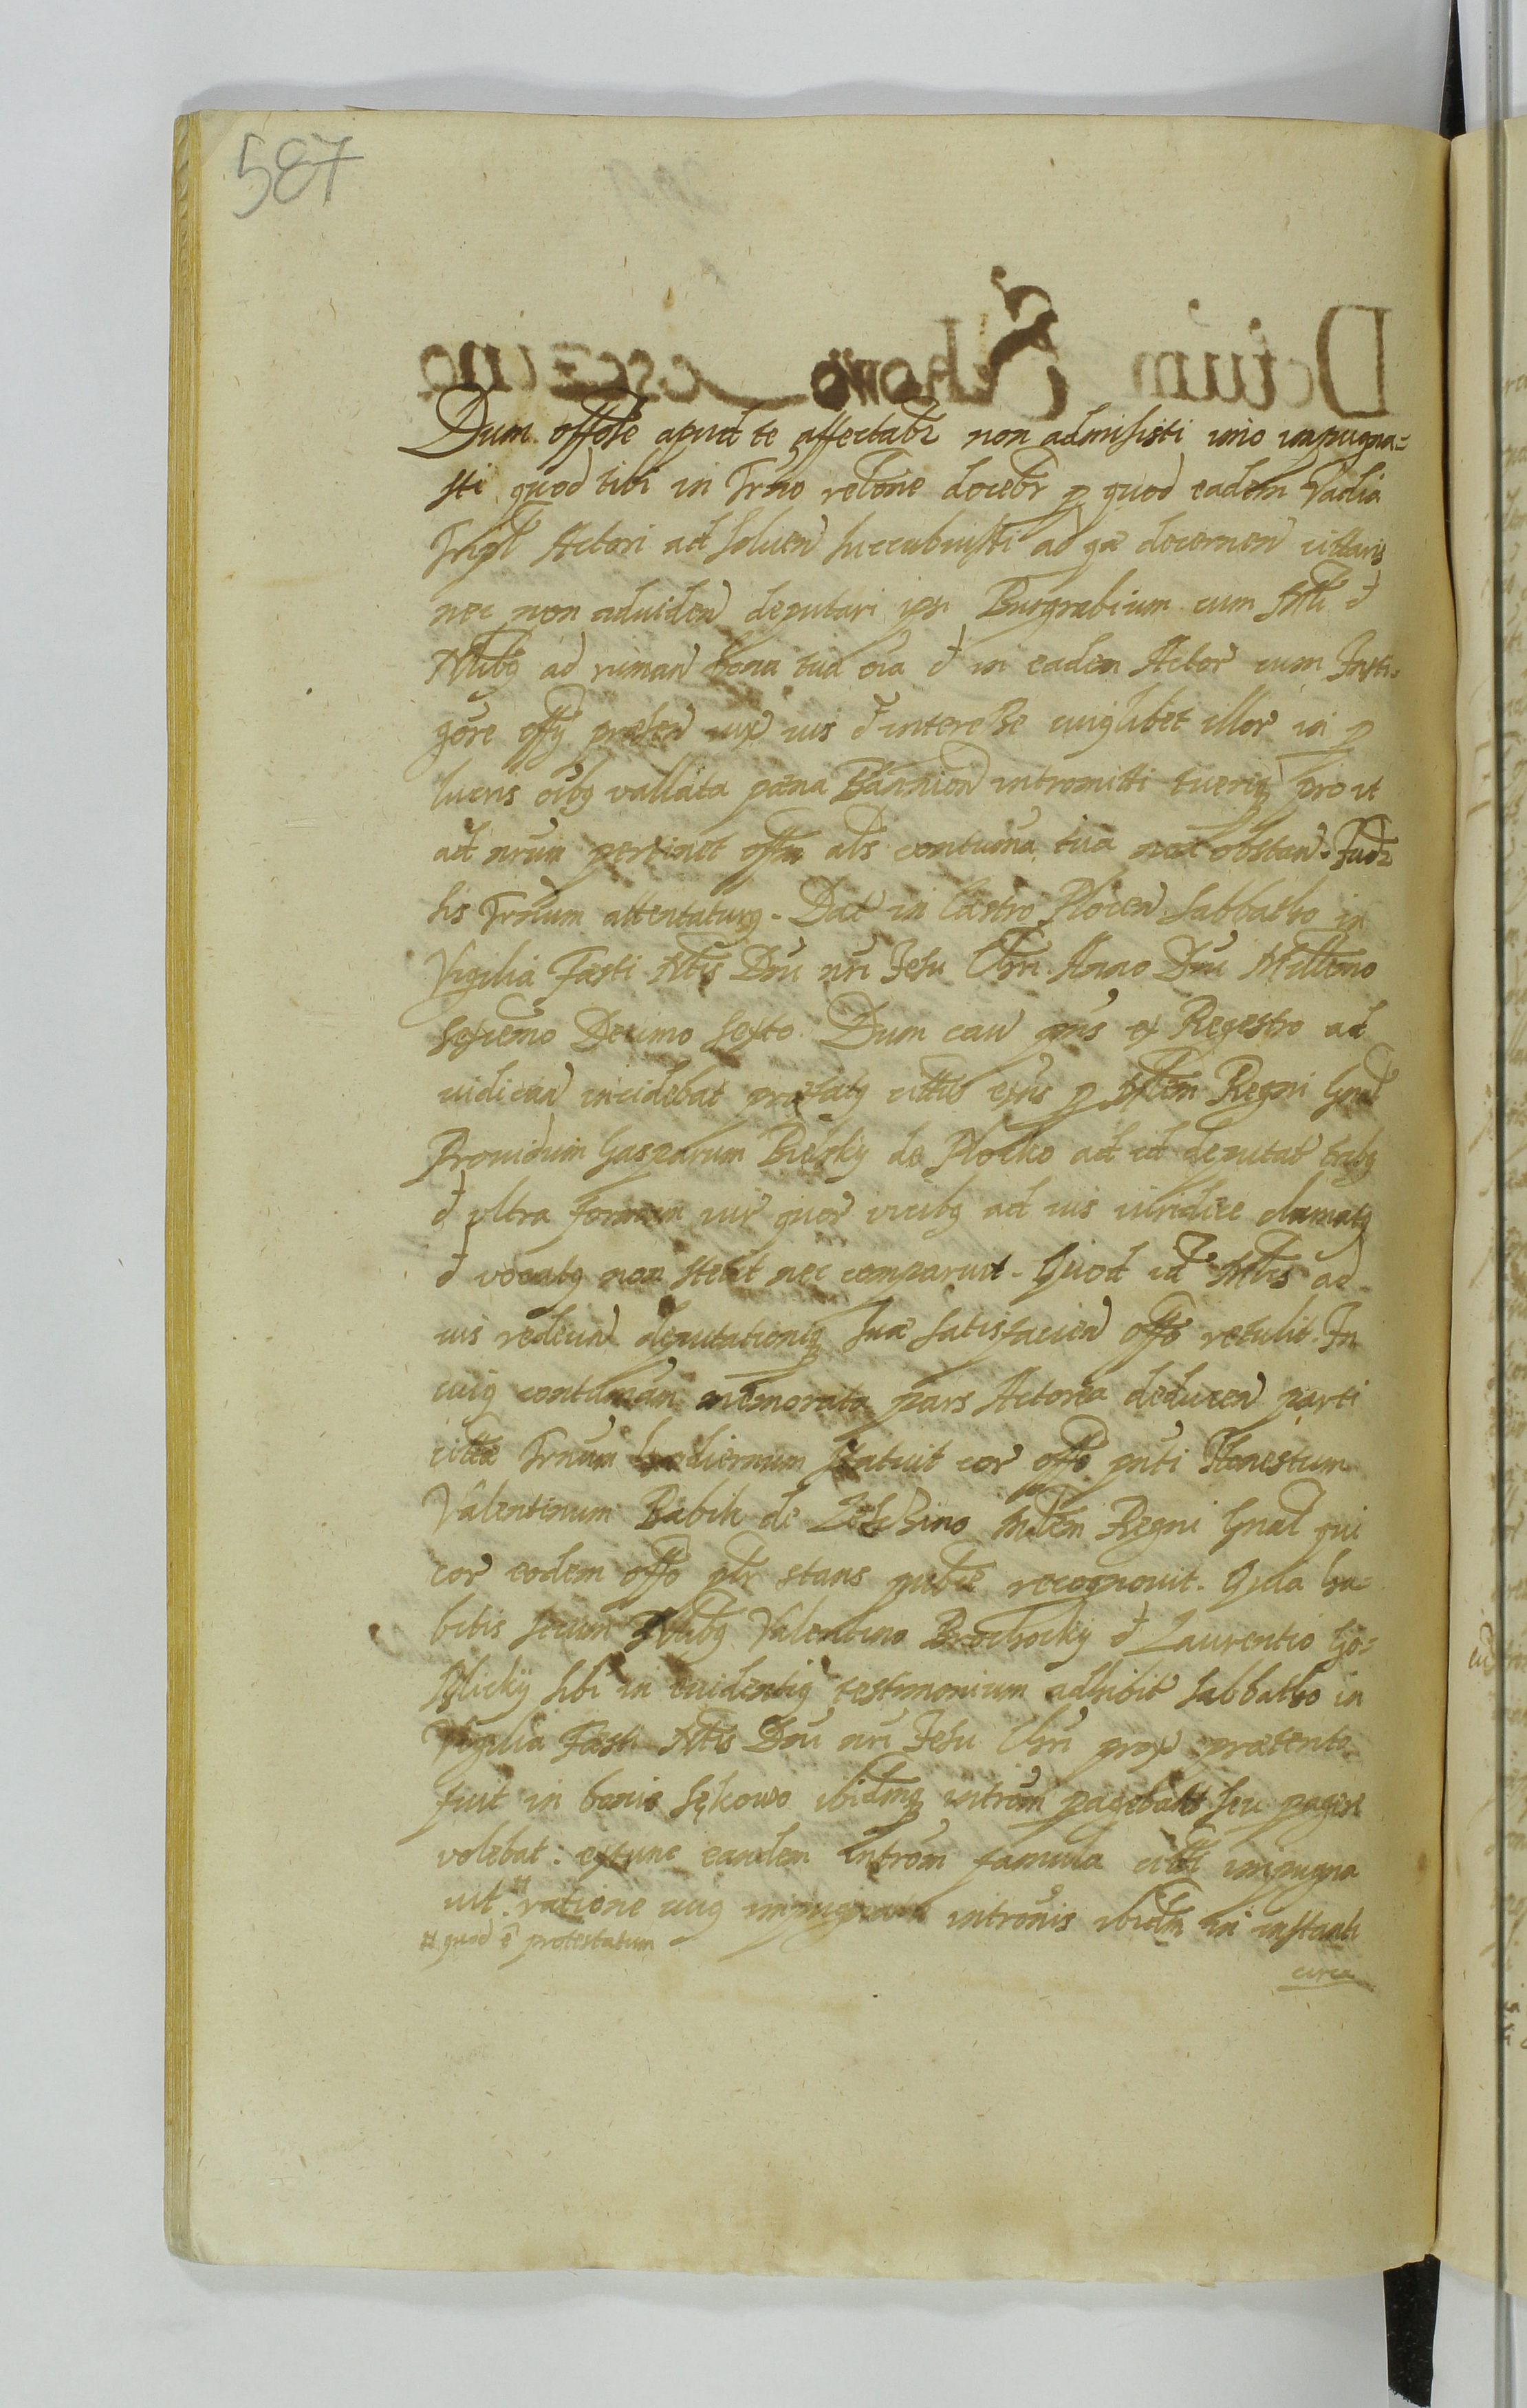 587
Dum offose apud te affectabr non admisisti imo impugna=
sti quod tibi in Trno relone docebr p quod eadem Vadia
Tripl Actori ad soluen succubuisti ad quæ decernen cittaris
nec non aduiden deputari ipsi Burgrabium cum Mli et
Nlibq ad ruman bona tua oia et in eadem Actor cum Insti-
gore offy præsen iux ius et interesse cuiqlibet illor in p
lucris oibq vallata pœna Bannion intromitti tueriq pro ut
ad nrum pertinet offm als contuma tua non obstan. Judr
sis Trnum attentaturq. Dat in Castro Plocen Sabbatho in
Vigilia Fæsti Ntis Dni nri Jesu Chri Anno Dni Millemo
Sexcemo Decimo Sexto. Dum cau pns ex Regestro ad
iudican incidebat præfatq cittus exns p Mlem Regni Gnal
Prouidum Gasparum Bielsky de Plocko ad id deputat tribq
et vltra formam iur quor vicibq ad ius iuridice clamatq
et vocatq non stetit nec comparuit. Quod id Mlis ad
ius reden deputationiq suæ satisfacien offo retulit. In
cuiq contumam memorata pars Actorea deducen parti
cittæ Trnum hodiernum statuit cor offo pnti Honestum
Valentinum Babik de Mlem Regni Gnal qui
cor eodem offo plr stans publce recognouit. Quia ha=
bitis secum Nlibq Valentino Brochocky et Laurentio Go=
slicky sibi in euidentiq testimonium adhibit Sabbatho in
Vigilia Fæsti Ntis Dni nri Jesu Chri prox præterita
fuit in bonis Sękowo ibidmq introm pagebat seu pagere
volebat: extunc eandem Introm famula citti impugna
uit # ratione cuiq impugnat intronis ibidm in instanti
# quod e protestatum
circa